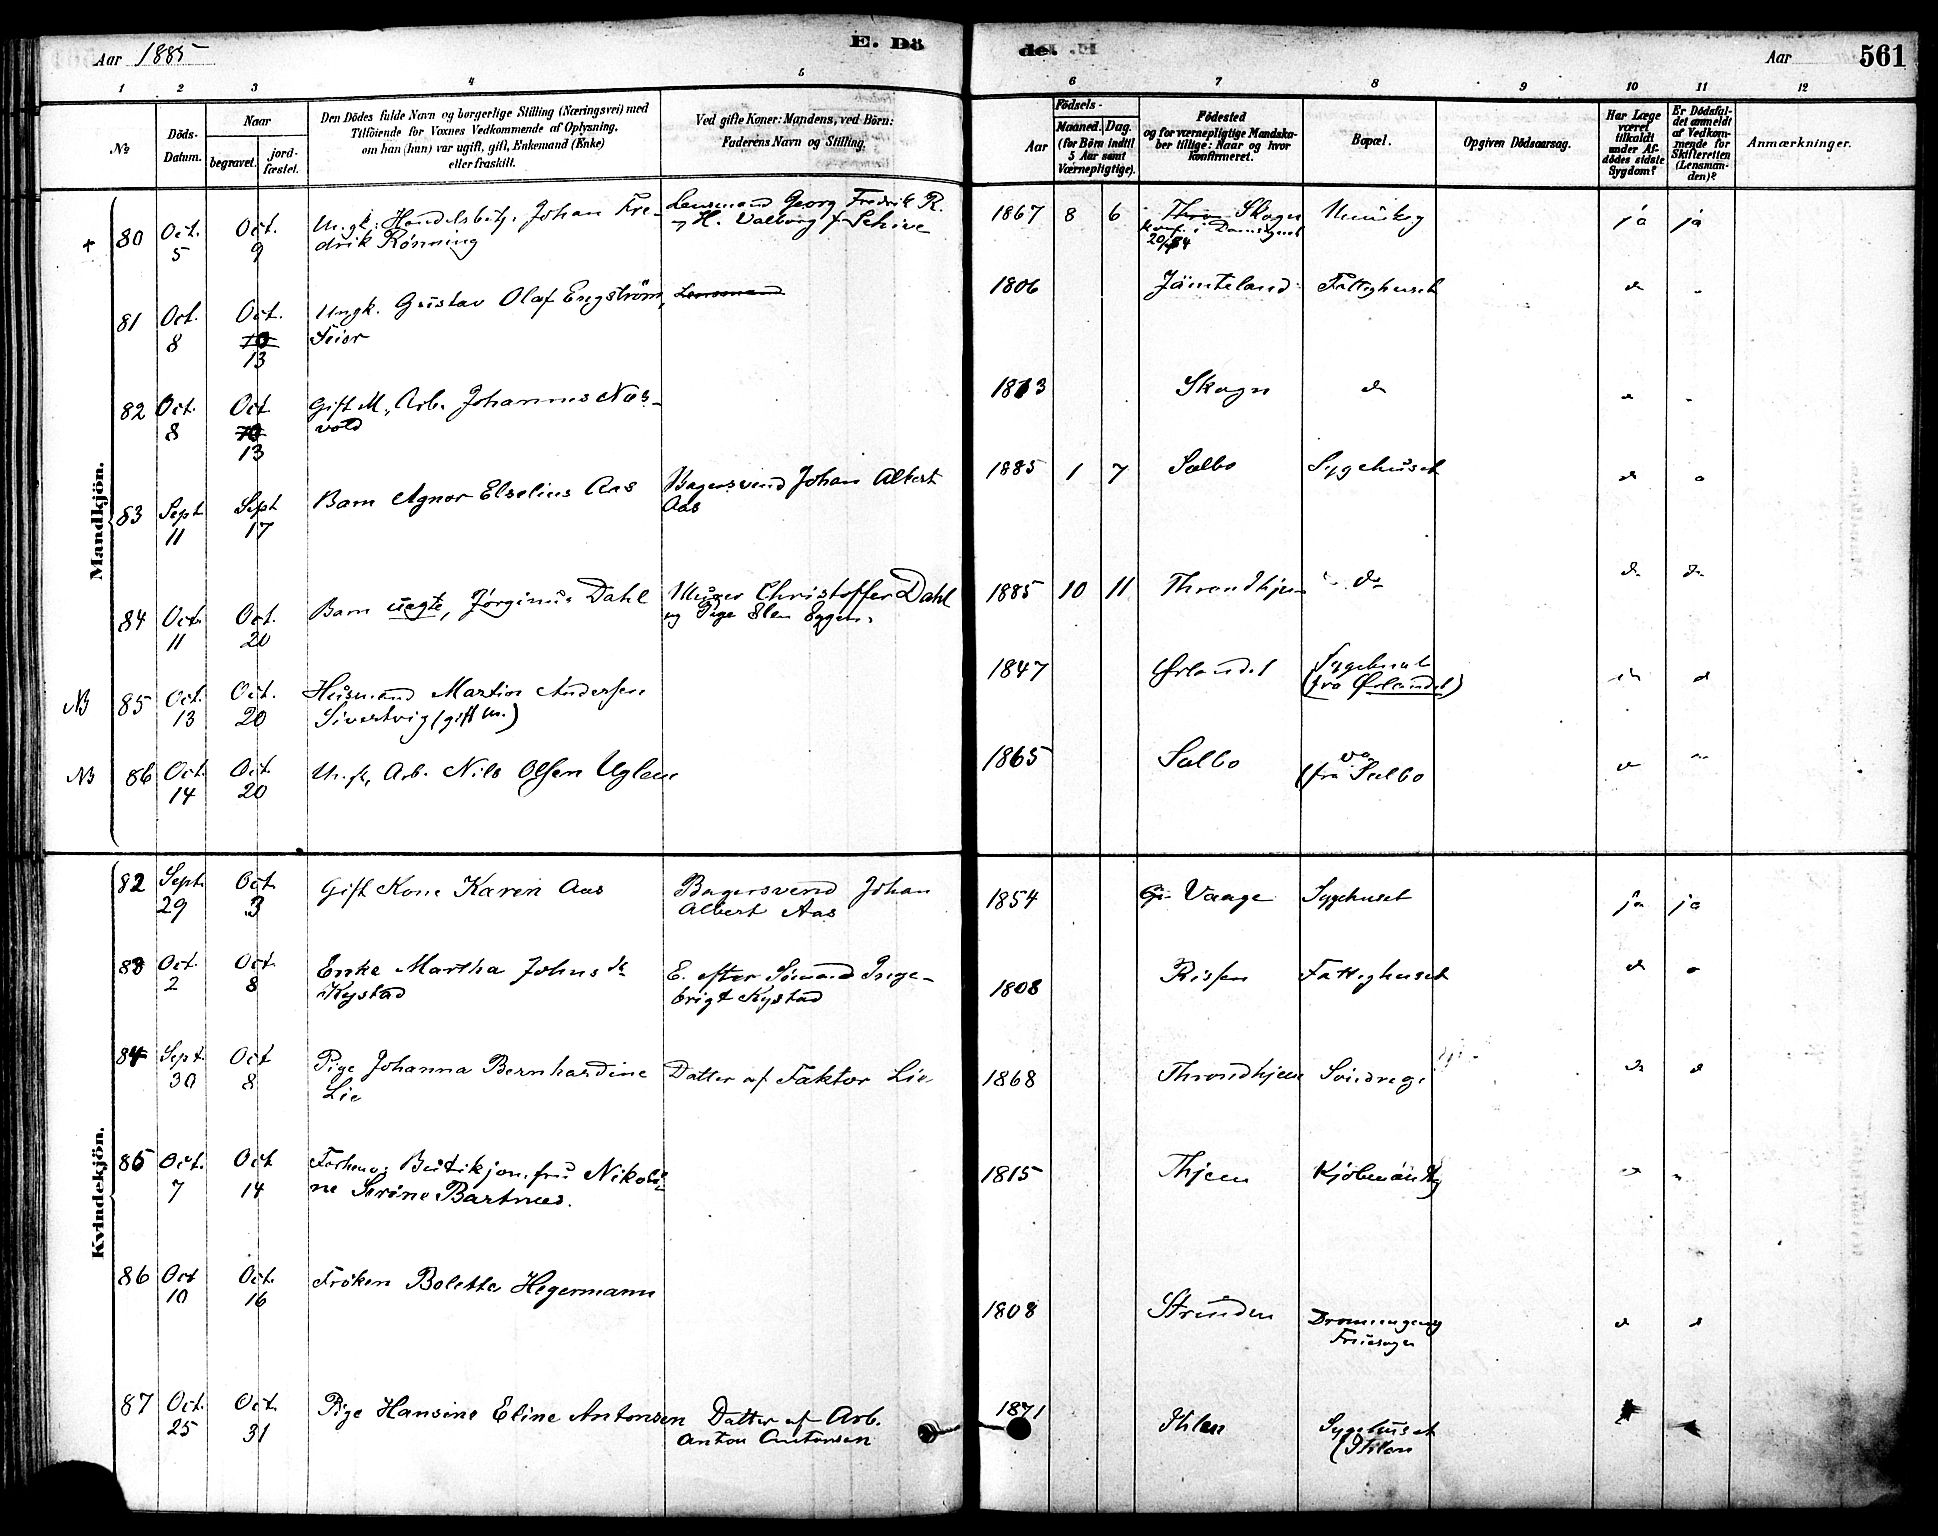 Aar 1885
E. Dö
de.
Aar
561
1 2 3 4 5 6 7 8 9 10 11 12
No
Döds-
Datum.
Naar
begravet.
jord-
fæstet.
Den Dödes fulde Navn og borgerlige Stilling (Næringsvei) med
Tilföiende for Voxnes Vedkommende af Oplysning,
om han (hun) var ugift, gift, Enkemand (Enke)
eller fraskilt.
Ved gifte Koner: Mandens, ved Börn:
Faderens Navn og Stilling.
Födsels-
Aar
Maaned. Dag.
(for Börn indtil
5 Aar samt
Værnepligtige).
Födested
og for værnepligtige Mandska-
ber tillige: Naar og hvor
konfirmeret.
Bopæl.
Opgiven Dödsaarsag.
Har Læge
været
tilkaldt
under Af-
dödes sidste
Sygdom?
Er Dödsfal-
det anmeldt
af Vedkom-
mende for
Skifteretten
(Lensman-
den)?
Anmærkninger.
Mandkjön.
80 Oct. 5 Oct. 9 Ungk. Handelsbetj. Johan Fre-
drik Rønning
Lensmand Georg Fredrik R.
og H. Valborg f. Schive
1867 8 6 Skogn
20/4 84
ja ja
81 Oct. 8 Oct. 10 13 Ungk. Gustav Olaf Engström,
Feier
Lensmand
1806 Jämteland Fattighuset do
82 Oct. 8 Oct 10 13 Gift M., Arb. Johannes Nos-
vold
1813 Skogn do
83 Sept 11 Sept 17 Barn Agnor Elselius Aas
Bagersvend Johan Albert
Aas
1885 1 7 Selbo Sygehuset do
84 Oct. 11 Oct. 20 Barn uægte, Jørginus Dahl
Murer Christoffer Dahl
og Pige Elen Eggen.
1885 10 11 Throndhjem do do do
NB 85 Oct. 13 Oct. 20 Husmand Martin Andersen
Sivertvig (gift m.)
1847 Ørlandet Sygehuset
(fra Ørlandet)
NB 86 Oct. 14 Oct. 20 Ungk. Arb. Nils Olsen Uglem
1865 Selbo do
(fra Selbo
Kvindekjön.
82 Sept. 29 Oct. 3 Gift Kone Karen Aas
Bagersvend Johan
Albert Aas
1854 Vaage Sygehuset ja ja
83 Oct. 2 Oct. 8 Enke Martha Johnsdr
Kystad
E. efter Sömand Inge-
brigt Kystad
1808 Rissen Fattighuset do
84 Sept. 30 Oct 8 Pige Johanna Bernhardine
Lie
Datter af Faktor Lie
1868 Throndhjem Søndreg. do
85 Oct. 7 Oct 14 Nikoli-
ne Serine Bartnes.
1815 Thjem Kjøbmandsg
86 Oct 10 Oct. 16 Frøken Bolette Hegermann
1808 Strinden Dronningensg
do
87 Oct. 25 Oct. 31 Pige Hansine Eline Antonsen
Datter af Arb.
Anton Antonsen
1871 Ihlen Sygehuset
(Ihlen